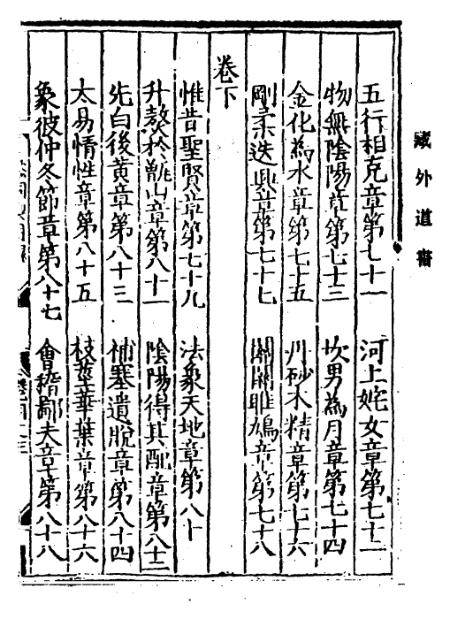 藏外道書
五行相克章第七十一　河上姹女章第七十二
物無陰陽章第七十三　坎男為月章第七十四
金化為水章第七十五　丹砂木精章第七十六
剛柔迭興章第七十七　關關雎鳩章第七十八
卷下
惟昔聖賢章第七十九　法象天地章第八十
升熬於甑山章第八十一　陰陽得其配章第八十二
先白後黃章第八十三　補塞遺脫章第八十四
太易情性章第八十五　枝莖華葉章第八十六
象彼仲冬節章第八十七　會稽鄙夫章第八十八